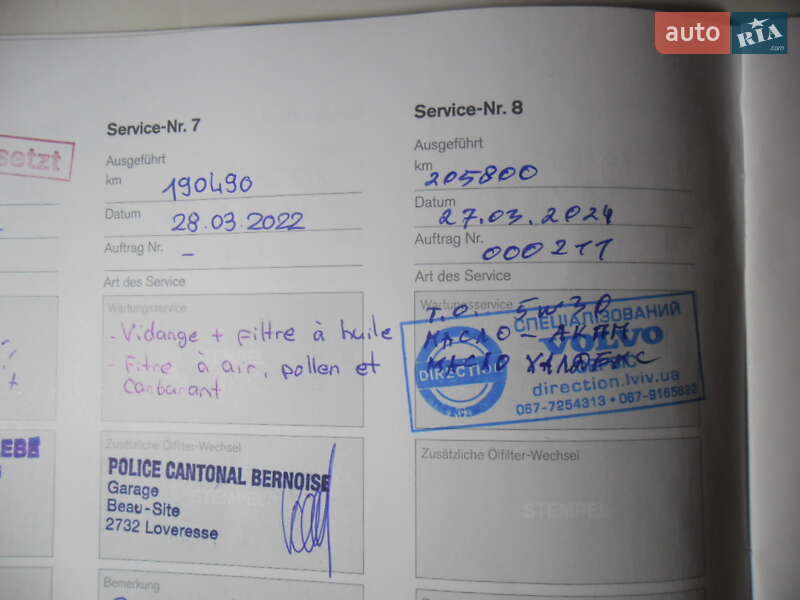 auto RIA .com
setzt
Service-Nr. 7
Ausgeführt
km 190490
Datum 28.03.2022
Auftrag Nr. –
Art des Service
Wartungsservice
- Vidange + filtre à huile
- Fitre à air, pollen et
Carbarant
Zusätzliche Ölfilter-Wechsel
POLICE CANTONAL BERNOISE
Garage
Beau-Site
2732 Loveresse
STEMPEL
Bemerkung
Service-Nr. 8
Ausgeführt
km 205800
Datum 27.03.2024
Auftrag Nr. 000211
Art des Service
Wartungsservice
т.о. 5w30
масло - АКПП
масло халдекс
СПЕЦІАЛІЗОВАНИЙ
VOLVO
DIRECTION
direction.lviv.ua
067-7254313 • 067-9165822
Zusätzliche Ölfilter-Wechsel
STEMPEL